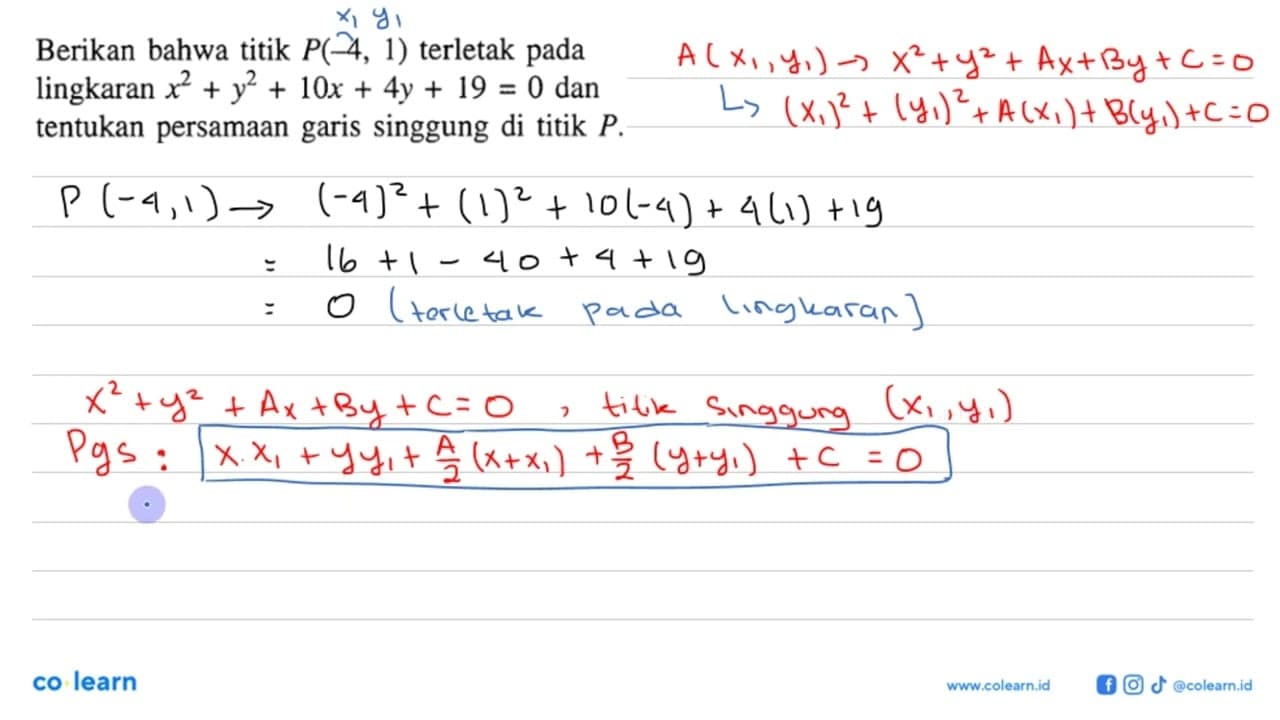 x₁ y₁
Berikan bahwa titik P(–4, 1) terletak pada
lingkaran x² + y² + 10x + 4y + 19 = 0 dan
tentukan persamaan garis singgung di titik P.
A(x₁,y₁) → x² + y² + Ax + By + C = 0
↳ (x₁)² + (y₁)² + A(x₁) + B(y₁) + C = 0
P(-4,1) → (-4)² + (1)² + 10(-4) + 4(1) + 19
= 16 + 1 - 40 + 4 + 19
= 0 (terletak pada lingkaran)
x² + y² + Ax + By + C = 0 , titik singgung (x₁,y₁)
Pgs : x.x₁ + yy₁ + A/2 (x+x₁) + B/2 (y+y₁) + C = 0
co learn
www.colearn.id
@colearn.id